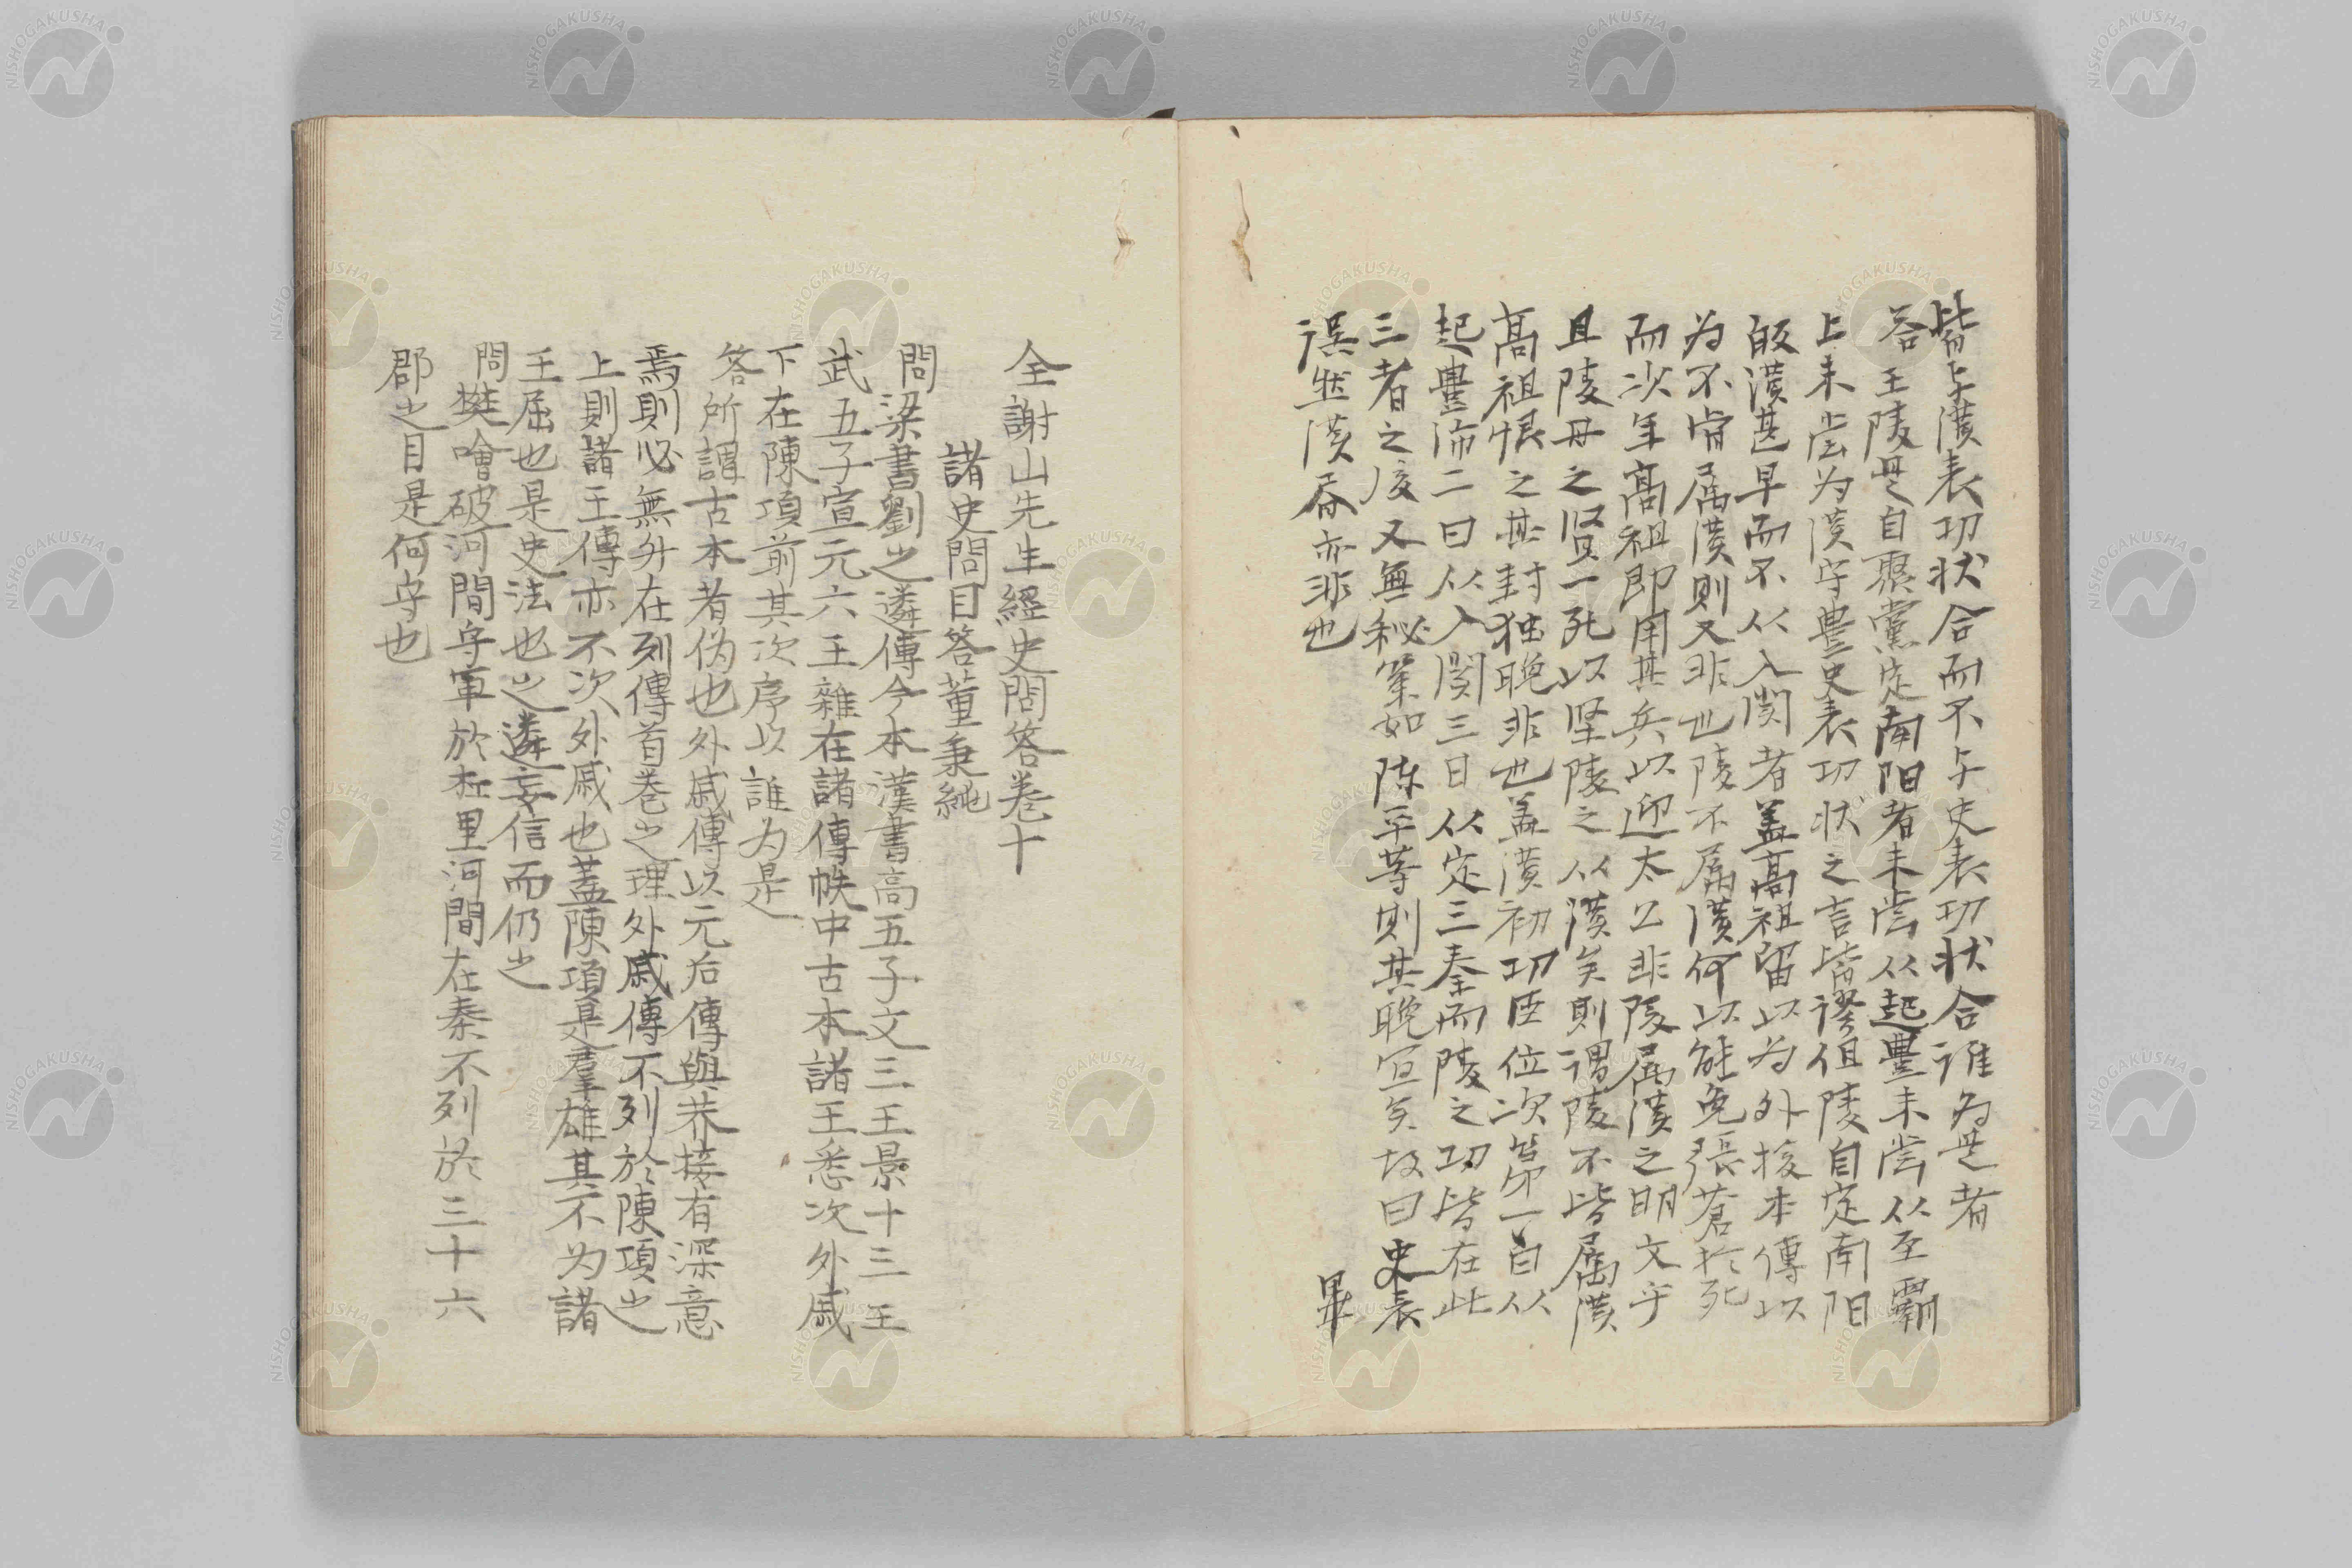 皆与漢表功状合而不与史表功状合誰为是者
答王陵是自聚黨定南阳者未尝从起豐未尝从至霸
上未尝为漢守豐史表功状之言皆謬但陵自定南阳
皈漢甚早而不从入関者盖高祖留以为外援本傳以
为不肯属漢则又非也陵不属漢何以能免張蒼扵死
而次年高祖即用其兵以迎太公非陵属漢之明文乎
且陵母之贤一死以坚陵之从漢矣則谓陵不皆属漢
高祖恨之其封独晚非也盖漢初功臣位次第一曰从
起豐沛二曰从入関三曰从定三秦而陵之功皆在此
三者之後又無秘策如陈平等則其晚宜矣故曰史表
误然漢春亦非也
畢
全謝山先生經史問答巻十
諸史問目答董秉純
問梁書劉之遴傳今本漢書高五子文三王景十三王
武五子宣元六王雜在諸傳帙中古本諸王悉次外戚
下在陳項前其次序以誰为是
答所謂古本者伪也外戚傳以元后傳與莽接有深意
焉則必無升在列傳首巻之理外戚傳不列於陳項之
上則諸王傳亦不次外戚也蓋陳項是羣雄其不为諸
王屈也是史法也之遴妄信而仍之
問樊噲破河間守軍於杠里河間在秦不列於三十六
郡之目是何守也
NISHOGAKUSHA